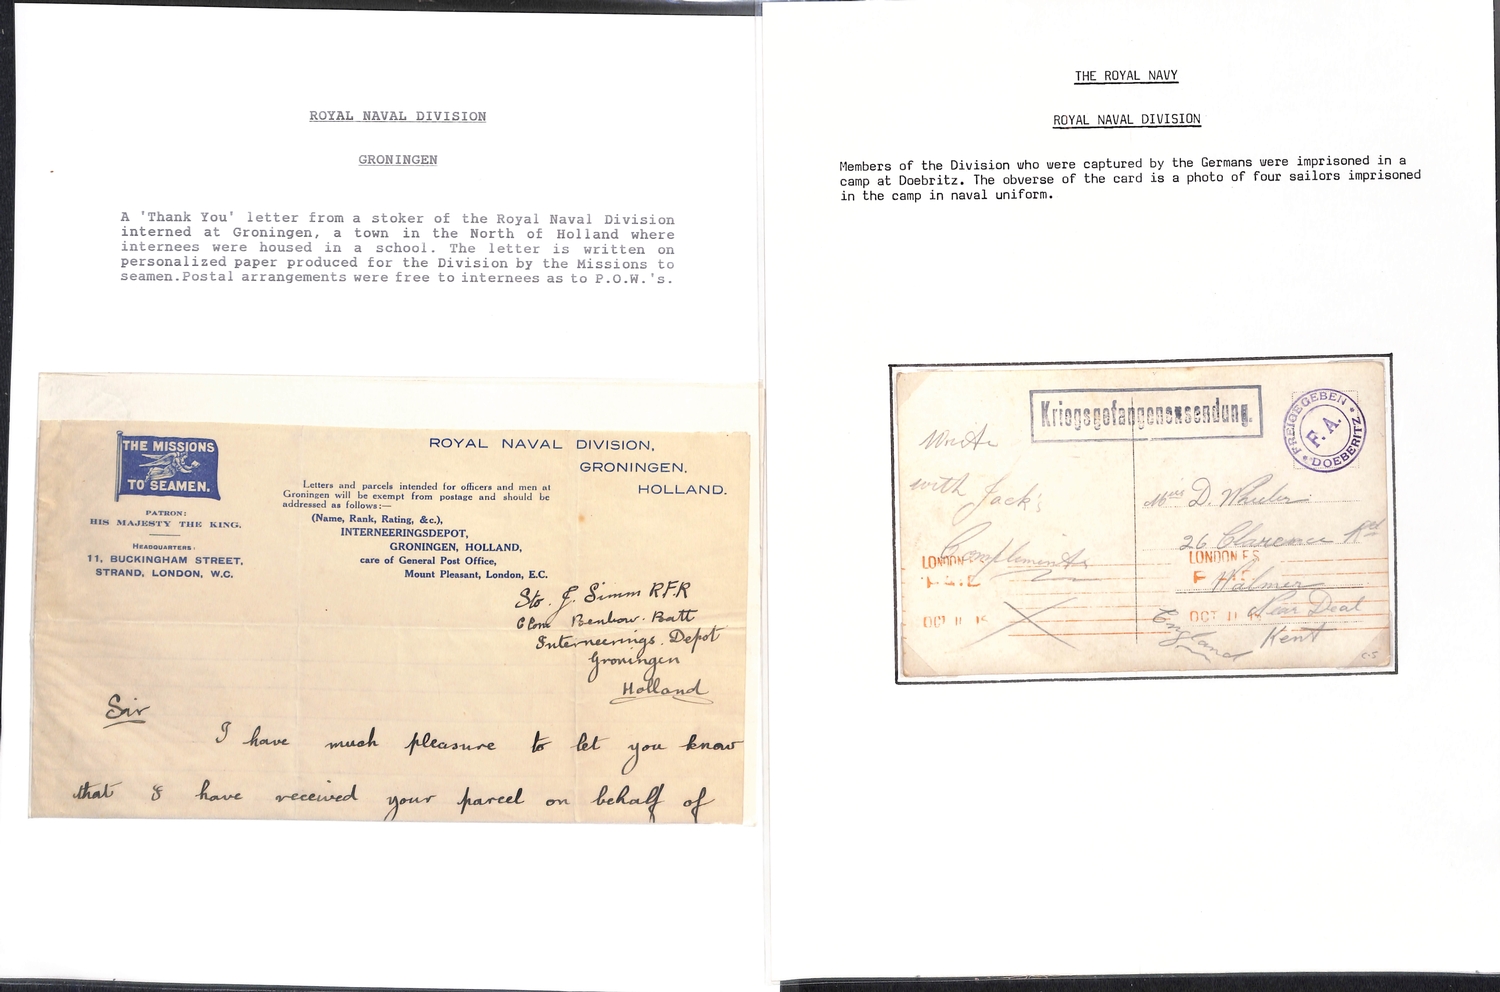 ROYAL NAVAL DIVISION
GRONINGEN
A 'Thank You' letter from a stoker of the Royal Naval Division
interned at Groningen, a town in the North of Holland where
internees were housed in a school. The letter is written on
personalized paper produced for the Division by the Missions to
seamen.Postal arrangements were free to internees as to P.O.W.'s.
THE MISSIONS
TO SEAMEN.
PATRON:
HIS MAJESTY THE KING.
HEADQUARTERS:
11, BUCKINGHAM STREET,
STRAND, LONDON, W.C.
ROYAL NAVAL DIVISION,
GRONINGEN,
HOLLAND.
Letters and parcels intended for officers and men at
Groningen will be exempt from postage and should be
addressed as follows:—
(Name, Rank, Rating, &c.),
INTERNEERINGSDEPOT,
GRONINGEN, HOLLAND,
care of General Post Office,
Mount Pleasant, London, E.C.
Sto. J. Simm R.F.R
Benbow. Batt
Interneerings. Depot
Groningen
Holland
Sir
I have much pleasure to let you know
that I have received your parcel on behalf of
THE ROYAL NAVY
ROYAL NAVAL DIVISION
Members of the Division who were captured by the Germans were imprisoned in a
camp at Doebritz. The obverse of the card is a photo of four sailors imprisoned
in the camp in naval uniform.
Kriegsgefangenensendung.
FREIGEGEBEN
F. A.
DOEBERITZ
with Jack's
Compliments
D. Wheeler
26 Clarence Rd
Walmer
Near Deal
Kent
England
LONDON
LONDON F.S
OCT 11 15
OCT 11
C-5